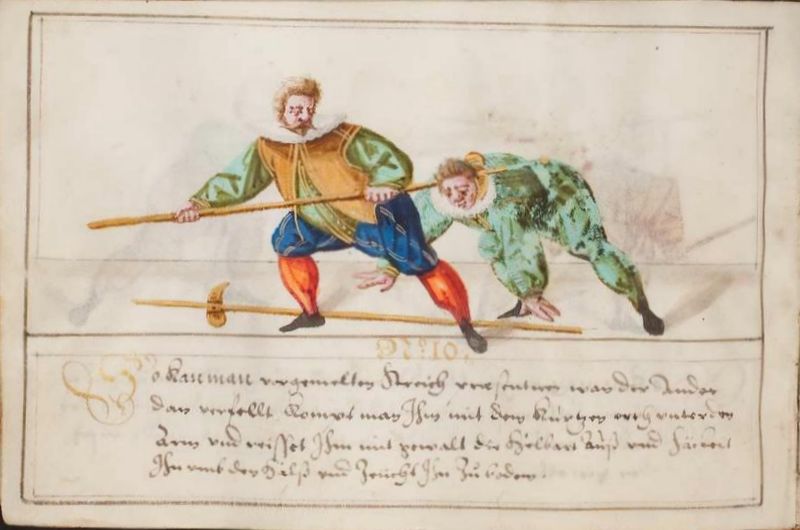 N°: 10.
So kan man vorgemelten streich praesentiren wan der Ander
dan verfellt kompt man Ihm mit dem kurtzen orth unter den
Arm und reisset Ihm mit gewalt die Helbart Auß und
Ihn umb den Halß und Zeucht Ihn Zu boden.